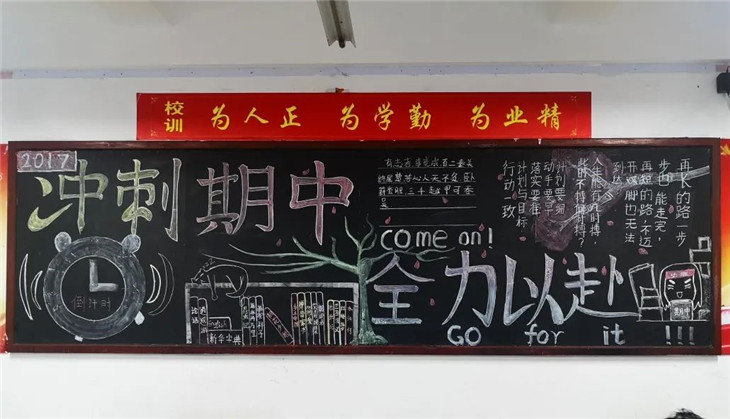 校训
为人正 为学勤 为业精
2017
冲刺期中
come on!
全力以赴
Go for it !!!
倒计时
新华字典
有志者事竟成百二秦
终属楚苦心人天不负卧
薪尝胆三千越甲可吞
吴
计划要细
动手要早
落实要狠
计划与目标
行动一致
人生能有几时搏,
此时不搏何时搏?
再长的路一步
步也能走完,
再短的路,不迈
开双脚也无法
到达.
必胜
期中